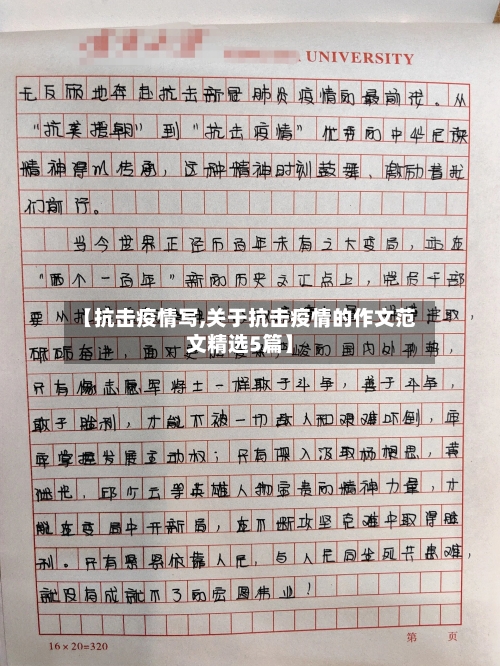 UNIVERSITY
无反顾地奔赴抗击新冠肺炎疫情的最前线。从
“抗美援朝”到“抗击疫情”优秀的中华民族
精神得以传承,这种精神时刻鼓舞、激励着我
们前行。
当今世界正经历百年未有之大变局,站在
“两个一百年”新的历史交汇点上,党员干部
要从抗
【抗击疫情写,关于抗击疫情的作文范
文精选5篇】
取,
砥砺奋进,面对
峻的国内外形势,
只有像志愿军将士一样敢于斗争,善于斗争,
敢于胜利,才能不被一切敌人和艰难吓倒,牢
牢掌握发展主动权;只有深入汲取杨根思,黄
继光,邱少云等英雄人物宝贵的精神力量,才
能在变局中开新局,在不断攻坚克难中取得胜
利。只有紧紧依靠人民,与人民同坐死共患难,
就没有成就不了的宏图伟业!
16×20=320
第 页